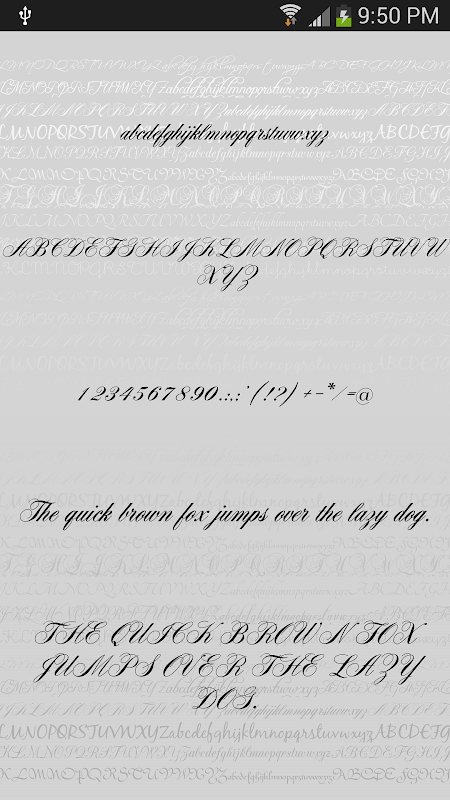 9:50 PM
abcdefghijklmnopqrstuvwxyz
ABCDEFGHIJKLMNOPQRSTUVW
XYZ
1234567890.:,;'(!?)+-*/=@
The quick brown fox jumps over the lazy dog.
THE QUICK BROWN FOX
JUMPS OVER THE LAZY
DOG.